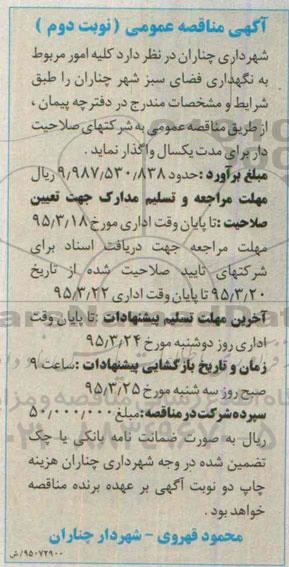 آگهی مناقصه عمومی (نوبت دوم)
شهرداری چناران در نظر دارد کلیه امور مربوط
به نگهداری فضای سبز شهر چناران را طبق
شرایط و مشخصات مندرج در دفترچه پیمان ،
از طریق مناقصه عمومی به شرکتهای صلاحیت
دار برای مدت یکسال واگذار نماید .
مبلغ برآورد : حدود ۹/۹۸۷/۵۳۰/۸۳۸ ریال
مهلت مراجعه و تسلیم مدارک جهت تعیین
صلاحیت : تا پایان وقت اداری مورخ ۹۵/۳/۱۸
مهلت مراجعه جهت دریافت اسناد برای
شرکتهای تایید صلاحیت شده از تاریخ
۹۵/۳/۲۰ تا پایان وقت اداری ۹۵/۳/۲۲
آخرین مهلت تسلیم پیشنهادات : تا پایان وقت
اداری روز دوشنبه مورخ ۹۵/۳/۲۴
زمان و تاریخ بازگشایی پیشنهادات : ساعت ۹
صبح روز سه شنبه مورخ ۹۵/۳/۲۵
سپرده شرکت در مناقصه : مبلغ ۵۰۰/۰۰۰/۰۰۰
ریال به صورت ضمانت نامه بانکی یا چک
تضمین شده در وجه شهرداری چناران هزینه
چاپ دو نوبت آگهی بر عهده برنده مناقصه
خواهد بود .
محمود قهروی - شهردار چناران
۹۵۰۷۲۹۰۰/ش